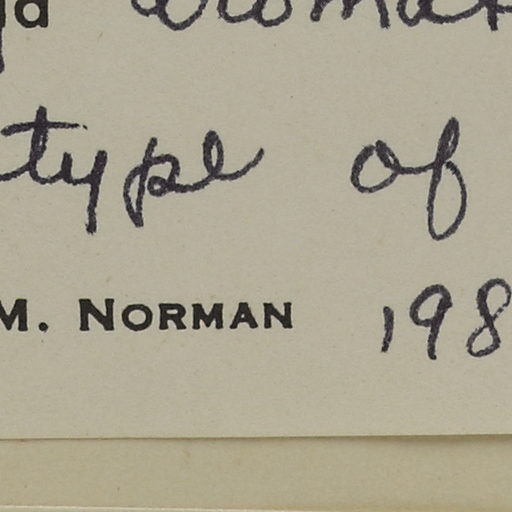 type of
M. NORMAN 198